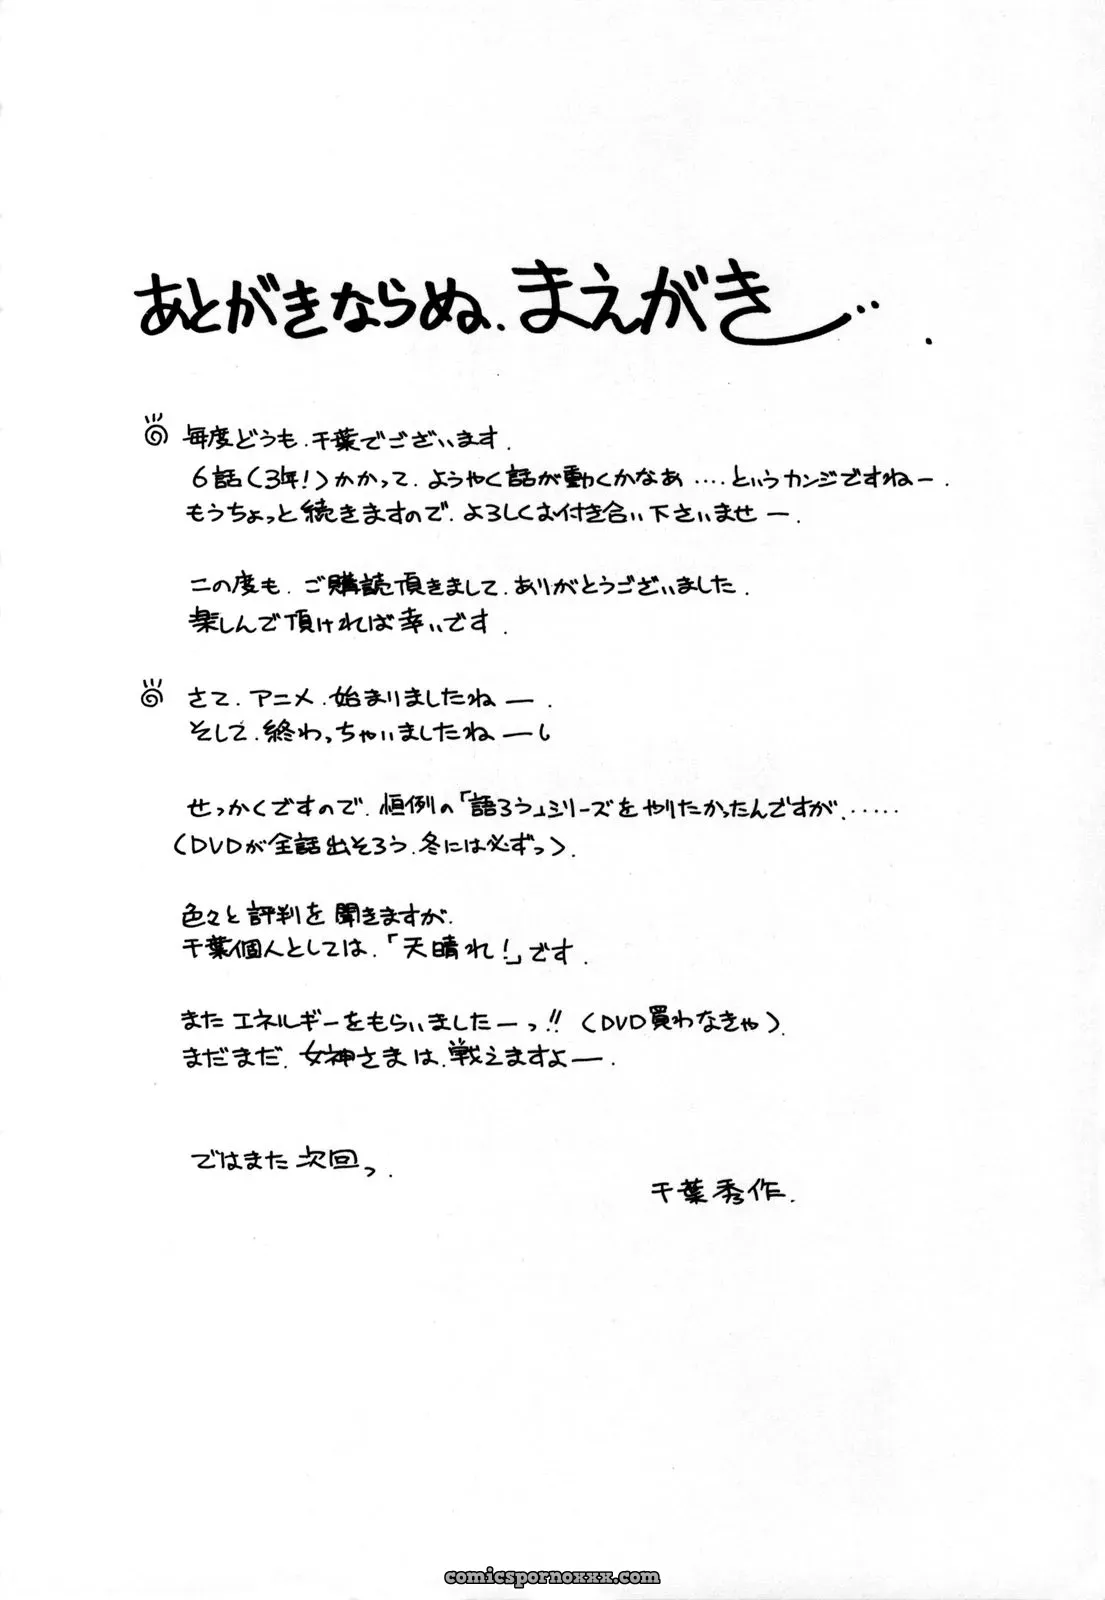 あとがきならぬ、まえがき…
毎度どうも、千葉でございます.
6話(3年!)かかって、ようやく話が動くかなあ‥‥というカンジですねー.
もうちょっと続きますので、よろしくお付き合い下さいませー.
この度も、ご購読頂きまして、ありがとうございました.
楽しんで頂ければ幸いです.
さて、アニメ、始まりましたねー.
そして、終わっちゃいましたねー
せっかくですので、恒例の「語ろう」シリーズをやりたかったんですが、‥‥‥
(DVDが全話出そろう、冬には必ずっ).
色々と評判を聞きますが、
千葉個人としては、「天晴れ!」です.
またエネルギーをもらいましたーっ!!(DVD買わなきゃ).
まだまだ、女神さまは、戦えますよー.
ではまた次回っ.
千葉秀作.
comicspornoxxx.com